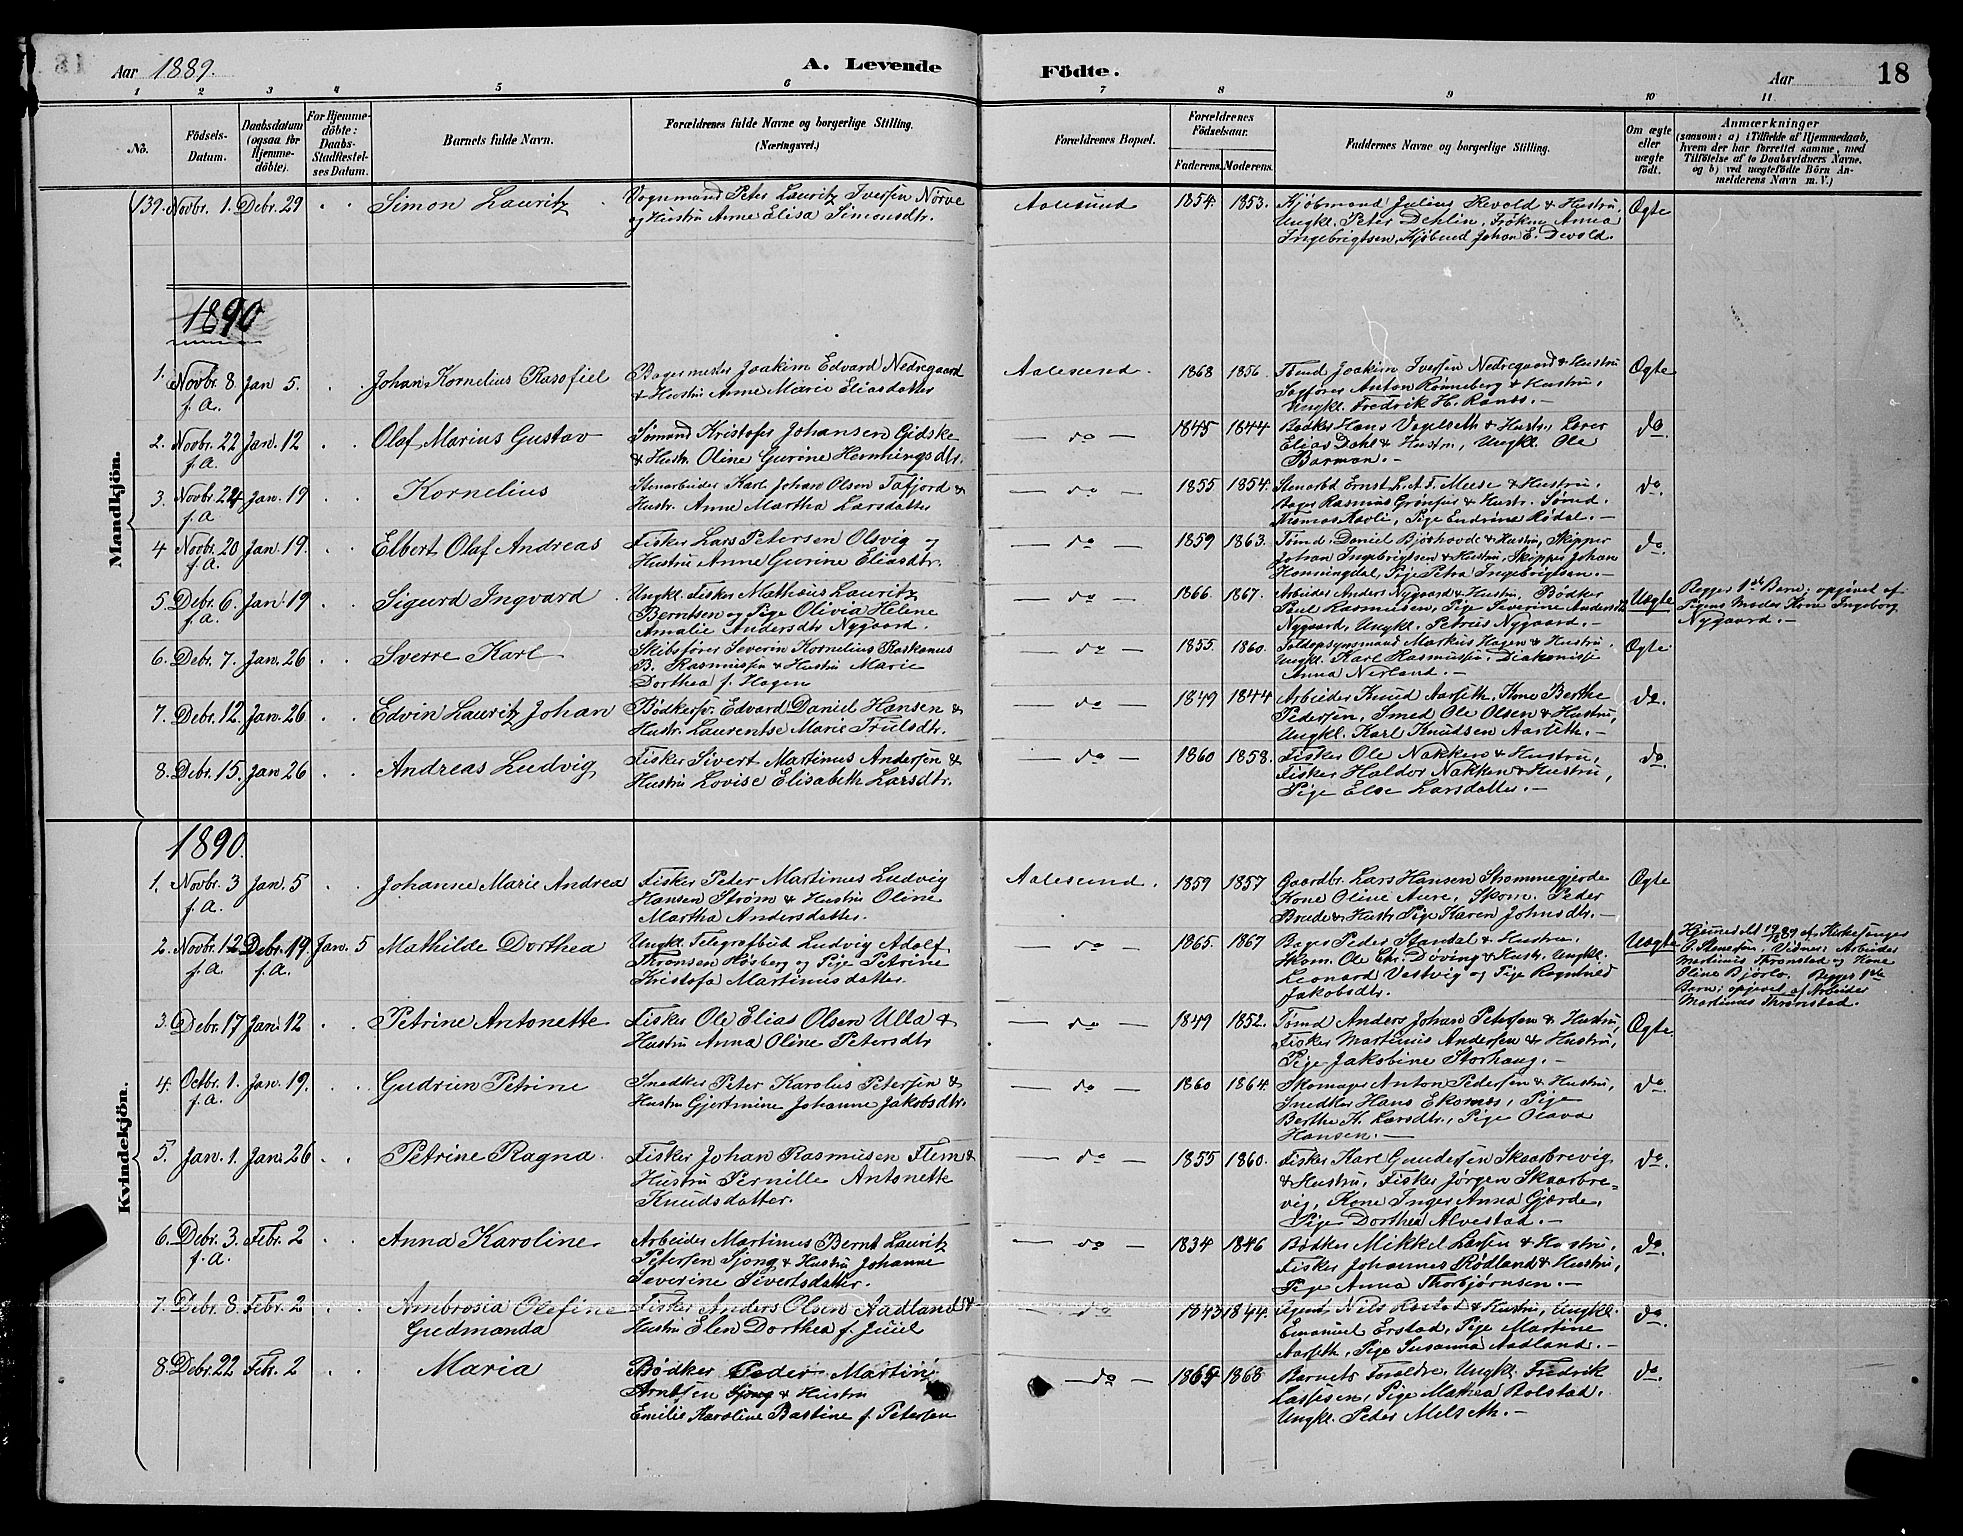 Aar 1889. A. Levende Födte. Aar 18
1 2 3 4 5 6 7 8 9 10 11
No.
Födsels-Datum.
Daabsdatum (ogsaa for Hjemme-döbte).
For Hjemme-döbte: Daabs-Stadfæstel-ses Datum.
Barnets fulde Navn.
Forældrenes fulde Navne og borgerlige Stilling.
(Næringsvei.)
Forældrenes Bopæl.
Forældrenes Födselsaar.
Faderens. Moderens.
Faddernes Navne og borgerlige Stilling.
Om ægte eller uægte födt.
Anmærkninger
(saasom: a) i Tilfælde af Hjemmedaab,
hvem der har forrettet samme, med
Tilföielse af to Daabsvidners Navne.
og b) ved uægtefödte Börn An-
melderens Navn m. V.)
Mandkjön.
139. Novbr. 1. Debr. 29 Simon Lauritz Vognmand Peter Lauritz Iversen Nörve Aalesund 1854. 1853. Kjöbmand Julius Hevold & Hustru, Ægte
og Hustru Anne Elisa Simonsdtr. Ungkl. Peter Dehlin, Fröken Anna
Ingebrigtsen, Kjöbmd Johan E. Devold.
1890
1. Novbr. 8. Jan 5. Johan Kornelius Rasofiel Bagermester Joakim Edvard Nedregaard Aalesund. 1868 1856. Joakim Iversen Nedregaard & Hustru Ægte
f. A. & Hustru Anne Marie Eliasdatter Sagförer Anton Rönneberg & Hustru,
Ungkl. Fredrik H. —
2. Novbr. 22 Jan. 12 Olaf Marius Gustav Sömand Kristofer Johansen Gidske — do — 1845 1844 Bödker Hans Vegelseth & Hustr, Lærer do
f. A. & Hustr. Oline Gurine Henningsdtr. Elias Dahl & Hustru, Ungkl. Ole
Barman. —
3. Novbr. 24 Jan. 19 Kornelius Stenarbeider Karl Johan Olsen Tafjord & — do — 1855 1854. Stenarbd Ernst L. A. F. Meese & Hustru, do.
f. A Hustr. Anne Martha Larsdatter Bager Rasmus & Hustr. Sömd.
Thomas, Pige Endrine Rödal. —
4 Novbr. 20 Jan. 19. Elbert Olaf Andreas Fisker Lars Petersen Olsvig og — do — 1859 1863. Tömd. Daniel Björhovde & Hustru, Skipper do.
f. A. Hustru Anne Gurine Eliasdtr. Johan Ingebrigtsen & Hustru, Skipper Johan
Honningdal, Pige Petra Ingebrigtsen. —
5. Debr. 6. Jan 19 Sigurd Ingvard Ungkl. Fisker Mathæus Lauritz — do — 1866 1867. Arbeider Anders Nygaard & Hustru, Bödker Uægte Begges 1ste Barn; opgivet af
f. A. Berntsen og Pige Olivia Helene Paul Rasmussen, Pige Severine Andersdtr Pigens Moder Kone Ingeborg
Amalie Andersdtr Nygaard. Nygaard, Ungkl. Petrus Nygaard. — Nygaard. —
6. Debr. 7. Jan. 26 Sverre Karl Skibsförer Severin Kornelius Raskanus — do — 1855. 1860. Toldopsynsmand Markus Hagen & Hustru. Ægte
B. Rasmussen & Hustru Marie Ungkl. Karl Rasmussen, Diakonisse
Dorthea f. Hagen Anna Nerland. —
7. Debr. 12. Jan. 26 Edvin Lauritz Johan Bödkersv. Edvard Daniel Hansen & — do — 1849 1844 Arbeider Knud Aarseth, Kone Berthe do.
Hustr. Laurentse Marie Trulsdtr. Pedersen, Smed Ole Olsen & Hustru,
Ungkl. Karl Knudsen Aarseth. —
8. Debr. 15. Jan 26 Andreas Ludvig Fisker Sivert Martinus Andersen & — do — 1860 1858. Fisker Ole Nakken & Hustru, do.
Hustru Lovise Elisabeth Larsdtr. Fisker Haldor Nakken & Hustru,
Pige Else Larsdatter. —
Kvindekjön.
1890.
1. Novbr. 3 Jan. 5 Johanne Marie Andrea Fisker Peter Martinus Ludvig Aalesund. 1859 1857 Gaardbr. Lars Hansen Strommegjerde Ægte
f. A. Hansen Ström & Hustru Oline Kone Oline Aure, Skom. Peder
Martha Andersdatter. Brude & Hustr. Pige Karen Johnsdtr. —
2. Novbr. 12 Debr. 19 Jan. 5 Mathilde Dorthea Ungkl. Telegrafbud Ludvig Adolf — do — 1865. 1867 Bager Peder Standal & Hustru. Uægte Hjemmedöbt 19/12 89 af Kirkesanger
f. A. f. A. Thronsen Höeberg og Pige Petrine Skom. Ole Chr. Döving & Hustr. Ungkl. O. Stenersen, Vidner: Arbeider
Kristofa Martinusdatter. Leonard Vestvig og Pige Ragnhild Martinus Thronstad og Kone
Jakobsdtr. Oline Björlo. Begges 1ste
Barn; opgivet af Arbeider
Martinus Thronstad.
3. Debr. 17 Jan. 12 Petrine Antonette Fisker Ole Elias Olsen Ulla & — do — 1849 1852. Tömd Anders Johan Petersen & Hustru, Ægte.
Hustru Anna Oline Petersdtr Fisker Martinus Andersen & Hustru,
Pige Jakobine Storhaug. —
4. Octbr. 1. Jan. 19. Gudrun Petrine Snedker Peter Karolus Petersen & — do — 1860 1864. Skomager Anton Pedersen & Hustru, do
f. A. Hustru Gjertmine Johanne Jakobsdtr. Snedker Hans Ekornes, Pige
Berthe K. Larsdtr., Pige Olava
Hansen. —
5. Jan. 1. Jan. 26 Petrine Ragna. Fisker Johan Rasmusen Flem & — do — 1855 1860. Fisker Karl Gundersen Skaarbrevig do.
Hustru Pernille Antonette & Hustru, Fisker Jörgen Skaarbre-
Knudsdatter. vig, Kone Inger Anna Gjörde,
Pige Dorthea Alvestad. —
6. Debr. 3. Febr. 2 Anna Karoline Arbeider Martinus Bernt Lauritz — do — 1834 1846 Bödker Mikkel Larsen & Hustru, do.
f. A. Petersen Sjong & Hustru Johanne Fisker Johannes Rödland & Hustru,
Severine Sivertsdatter. Pige Anna Thorbjörnsen. —
7. Debr. 8. Febr. 2 Ambrosia Olefine Fisker Anders Olsen Aadland & — do 1843 1844. Agent Nils & Hustru, Ungkl. do.
Gudmanda Hustru Elen Dorthea f. Juul Emanuel Erstad, Pige Martine
Aarseth, Pige Susanna Aadland. —
8. Debr. 22 Febr. 2 Maria Bödker Peder Martin — do — 1864 1868 Barnets Forældre, Ungkl. Fredrik do.
Arntsen Sjong & Hustru Lassesen, Pige Mathea Bolstad.
Emilie Karoline Bastine f. Petersen Ungkl. Peter Melseth. —